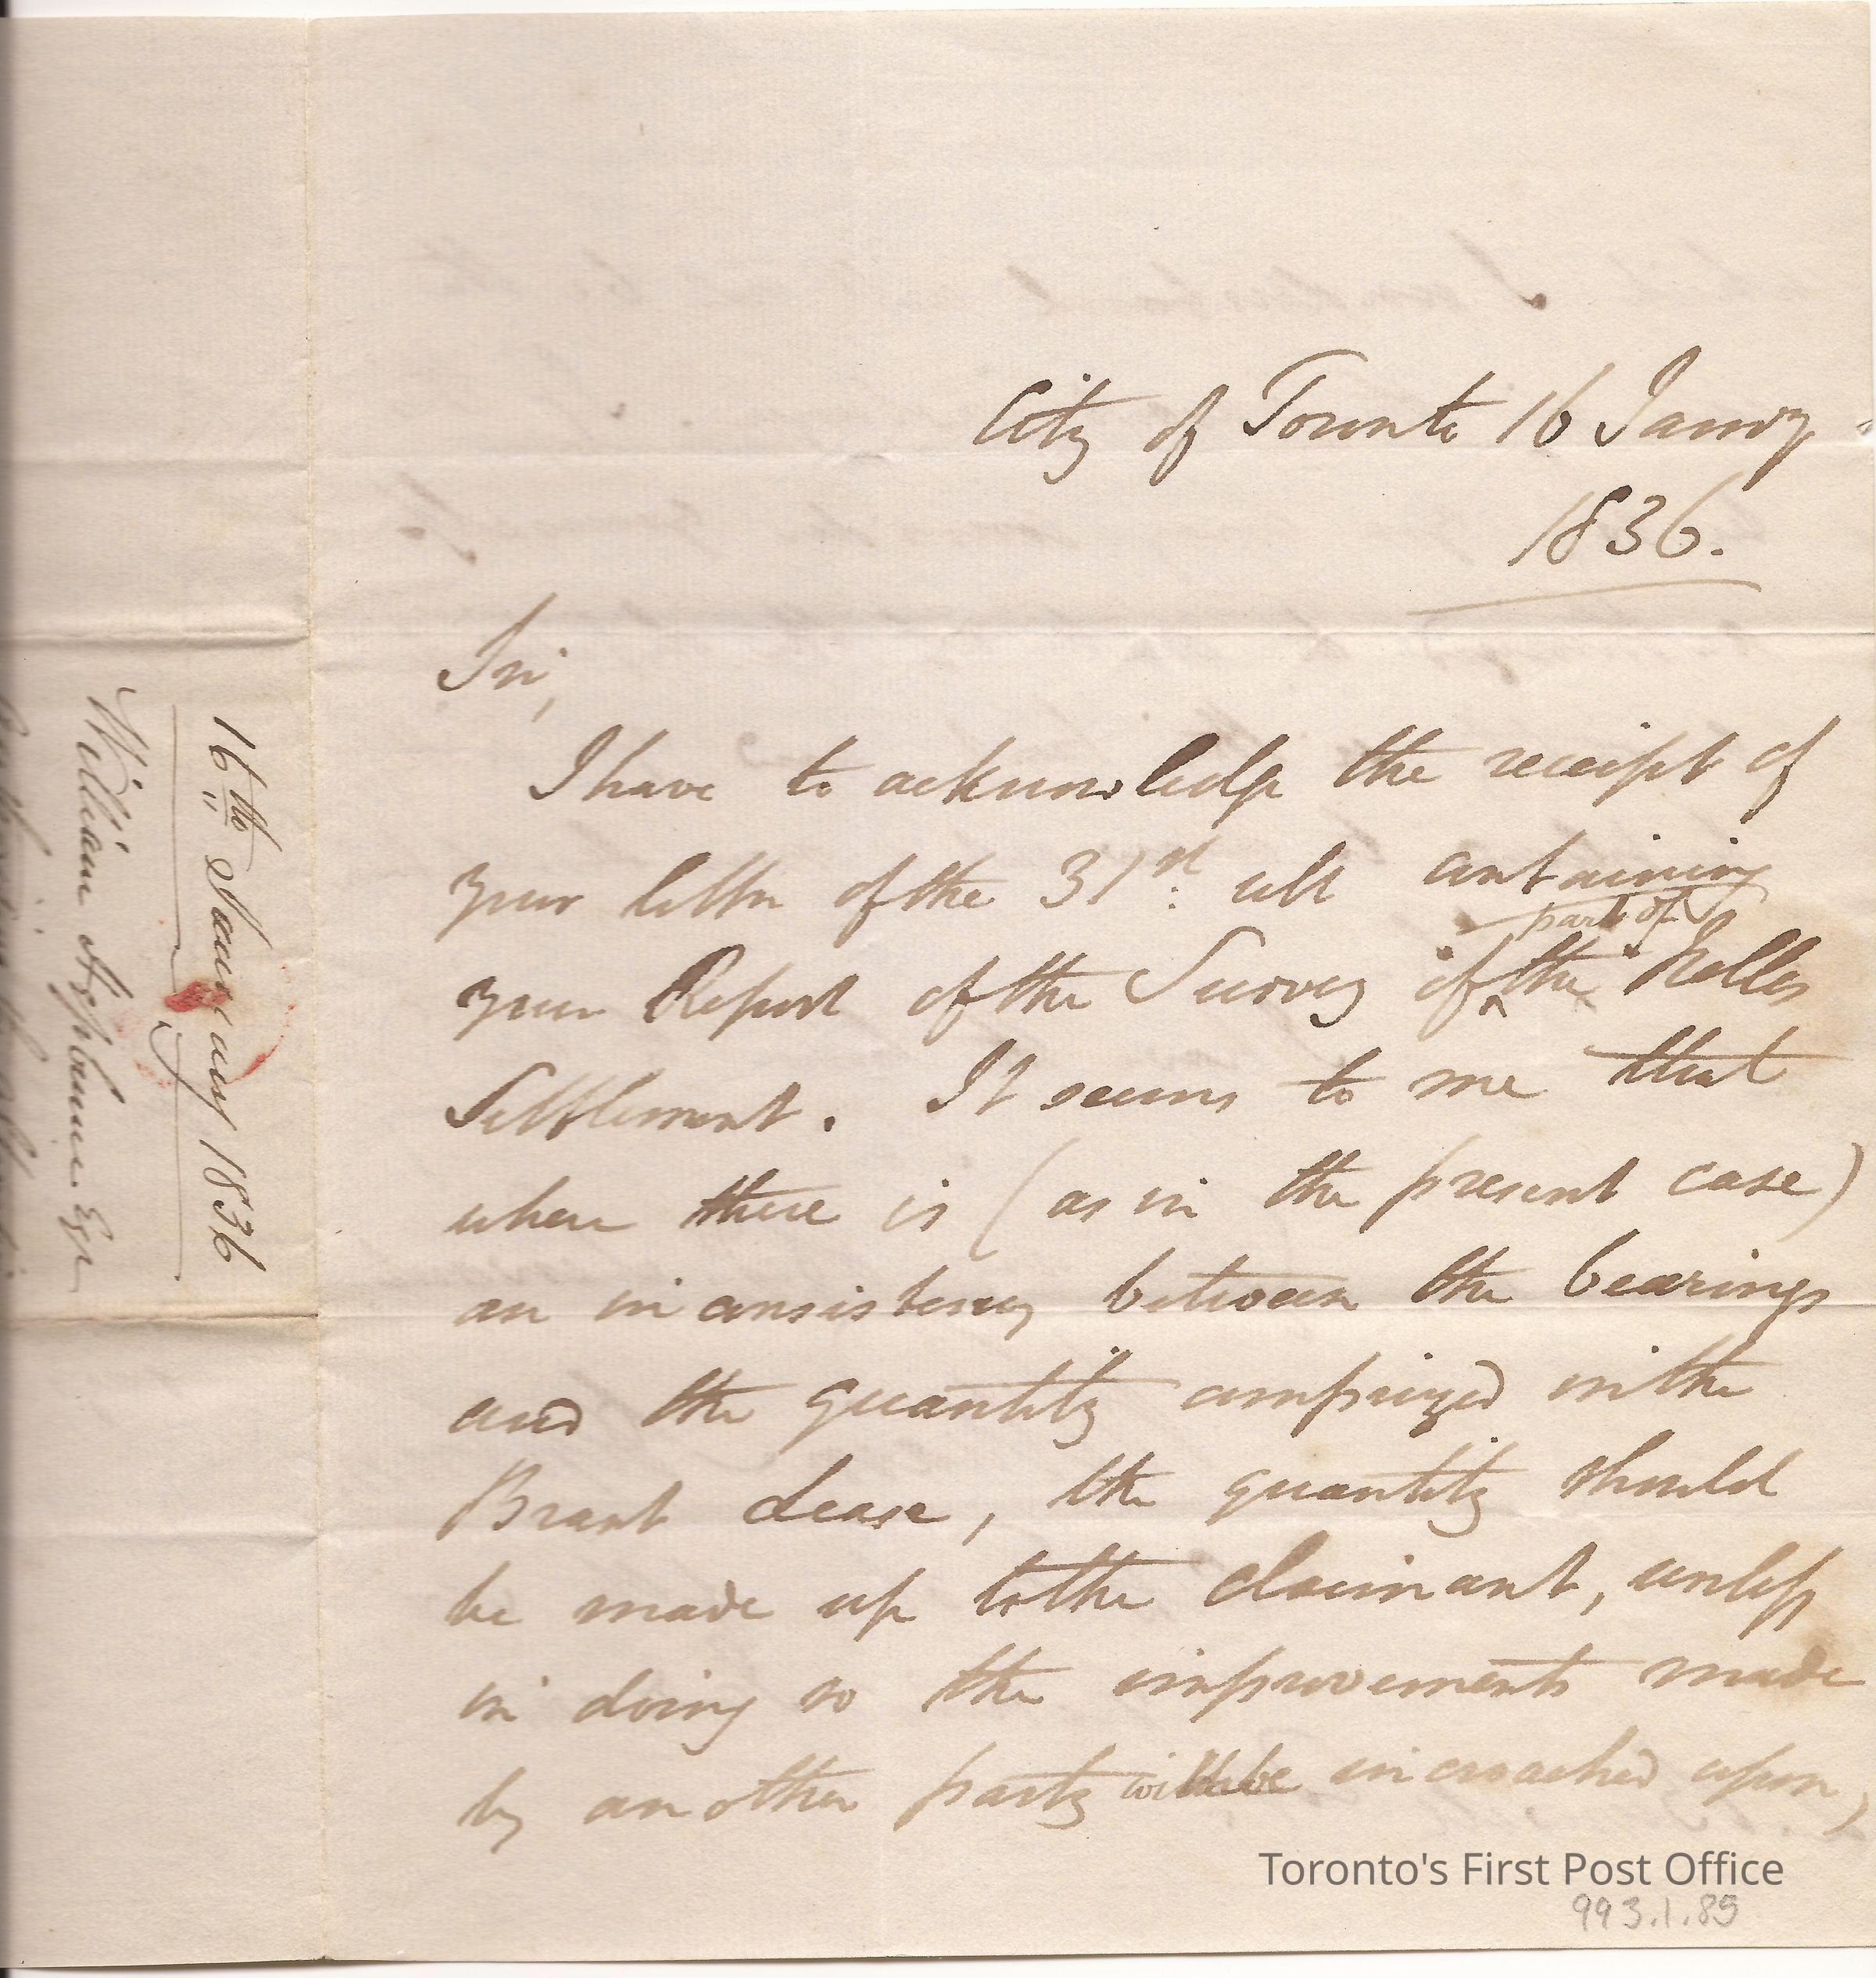 City of Toronto 16 Janry
1836.
Sir,
I have to acknowledge the receipt of
your letter of the 31st ult containing
part of
your Report of the Survey of the Nelles
Settlement. It seems to me that
where there is (as in the present case)
an inconsistency between the bearings
and the quantity comprized in the
Brant Lease, the quantity should
be made up to the claimant, unless
in doing so the improvements made
by another party will be incroached upon,
16th January 1836
William Hepburne Esqr
Toronto's First Post Office
993.1.89